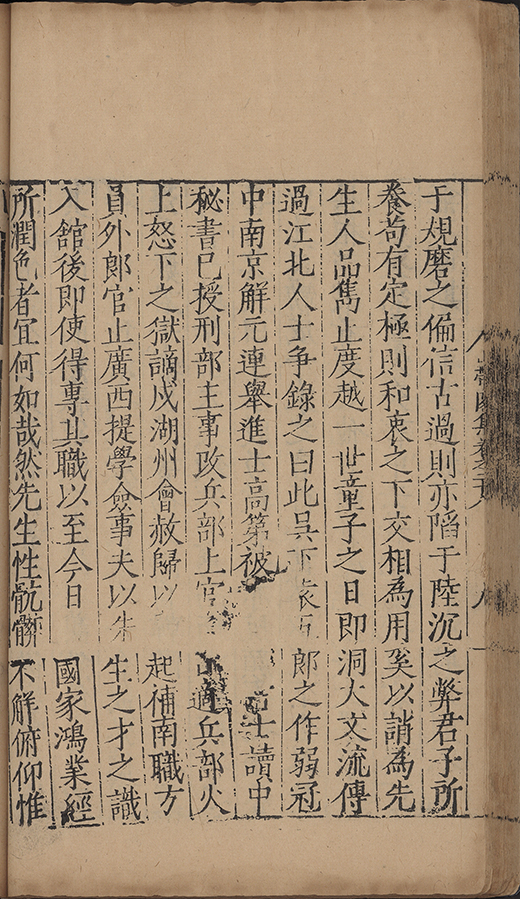 于規磨之偏信古過則亦陷于陸沉之弊君子所
養苟有定極則和衷之下交相為用奚以誚為先
生人品雋止度越一世童子之日即洞大文流傳
過江北人士爭錄之曰此吳下袁五郎之作弱冠
中南京解元連舉進士高第被士讀中
秘書已授刑部主事改兵部上官適兵部火
上怒下之獄謫戍湖州會赦歸以起補南職方
員外郎官止廣西提學僉事夫以生之才之識
入館後即使得專其職以至今日國家鴻業經
所潤色者宜何如哉然先生性骯髒不解俯仰惟